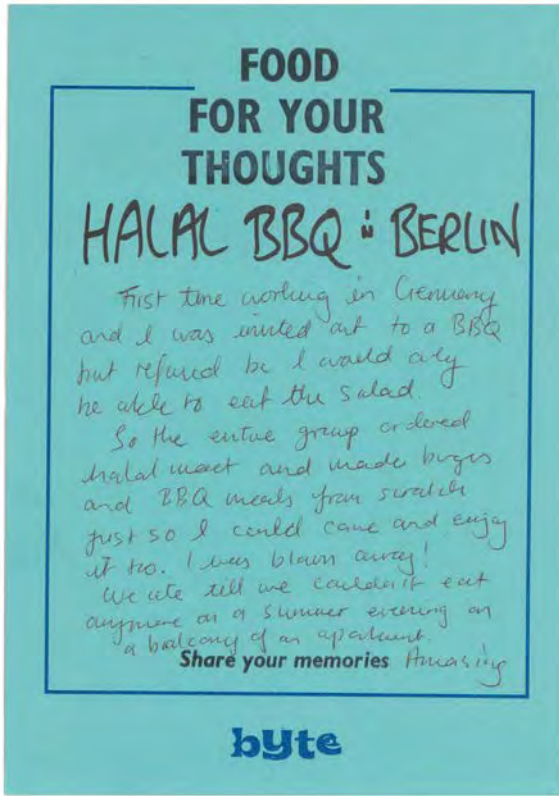 FOOD
FOR YOUR
THOUGHTS
HALAL BBQ in BERLIN
First time working in Germany
and I was invited out to a BBQ
but refused bc I would only
be able to eat the salad.
So the entire group ordered
halal meat and made burgers
and BBQ meals from scratch
just so I could come and enjoy
it too. I was blown away!
We ate till we couldn't eat
anymore on a summer evening on
a balcony of an apartment.
Share your memories Amazing
byte